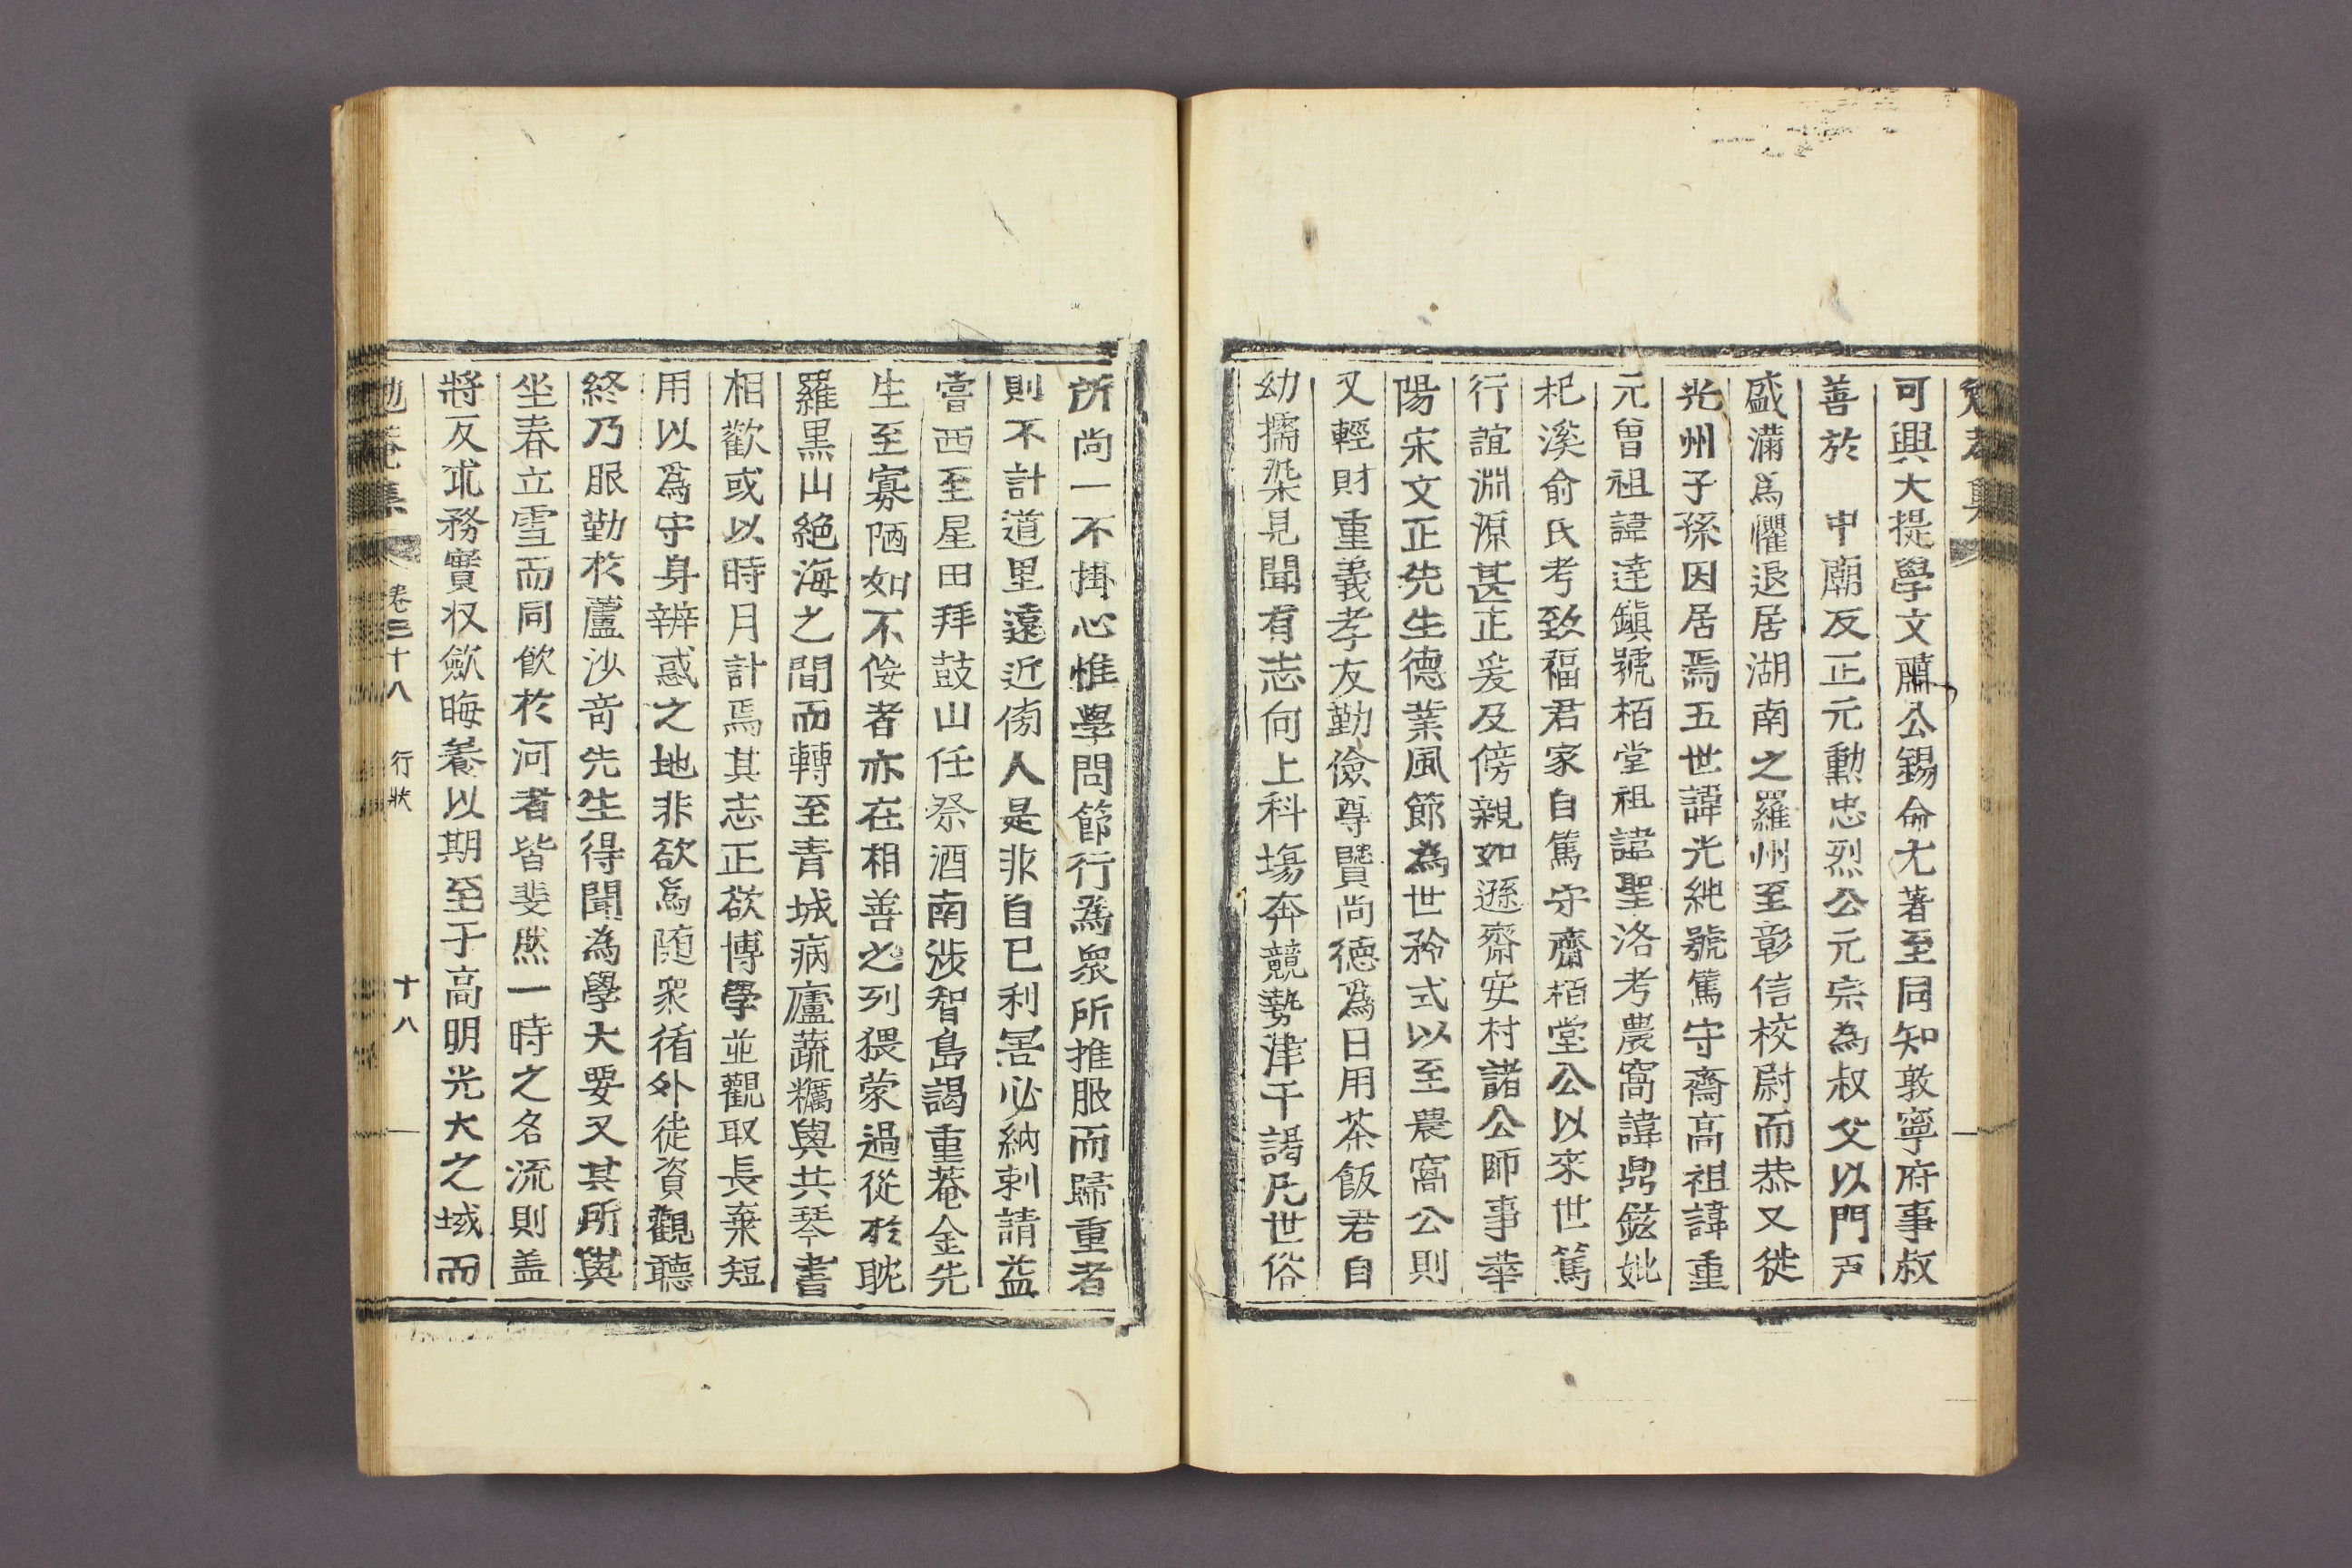 可興大提學文肅公錫命尤著至同知敦寧府事叔
善於 中廟反正元勳忠烈公元宗為叔父以門戸
盛滿爲懼退居湖南之羅州至彰信校尉而恭又徙
光州子孫因居焉五世諱光純號篤守齋高祖諱重
元曾祖諱逹鎭號栢堂祖諱聖洛考農窩諱鼎鉉妣
杞溪俞氏考致福君家自篤守齋栢堂公以來世篤
行誼淵源甚正爰及傍親如遜齋安村諸公師事華
陽宋文正先生德業風節為世矜式以至農窩公則
又輕財重義孝友勤儉尊賢尚德爲日用茶飯君自
幼擩染見聞有志向上科塲奔競勢津干謁凡世俗
所尚一不掛心惟學問節行爲衆所推服而歸重者
則不計道里遠近傍人是非自已利害必納刺請益
嘗西至星田拜鼓山任祭酒南涉智島謁重菴金先
生至寡陋如不佞者亦在相善之列猥蒙過從於耽
羅黒山絶海之間而轉至青城病廬蔬糲與共琴書
相歡或以時月計焉其志正欲博學並觀取長棄短
用以爲守身辨惑之地非欲爲随衆循外徒資觀聽
終乃服勤於蘆沙竒先生得聞為學大要又其所與
坐春立雪而同飮於河者皆斐然一時之名流則盖
將反求務實収斂晦養以期至于高明光大之域而
勉菴集 卷三十八 行狀 十八